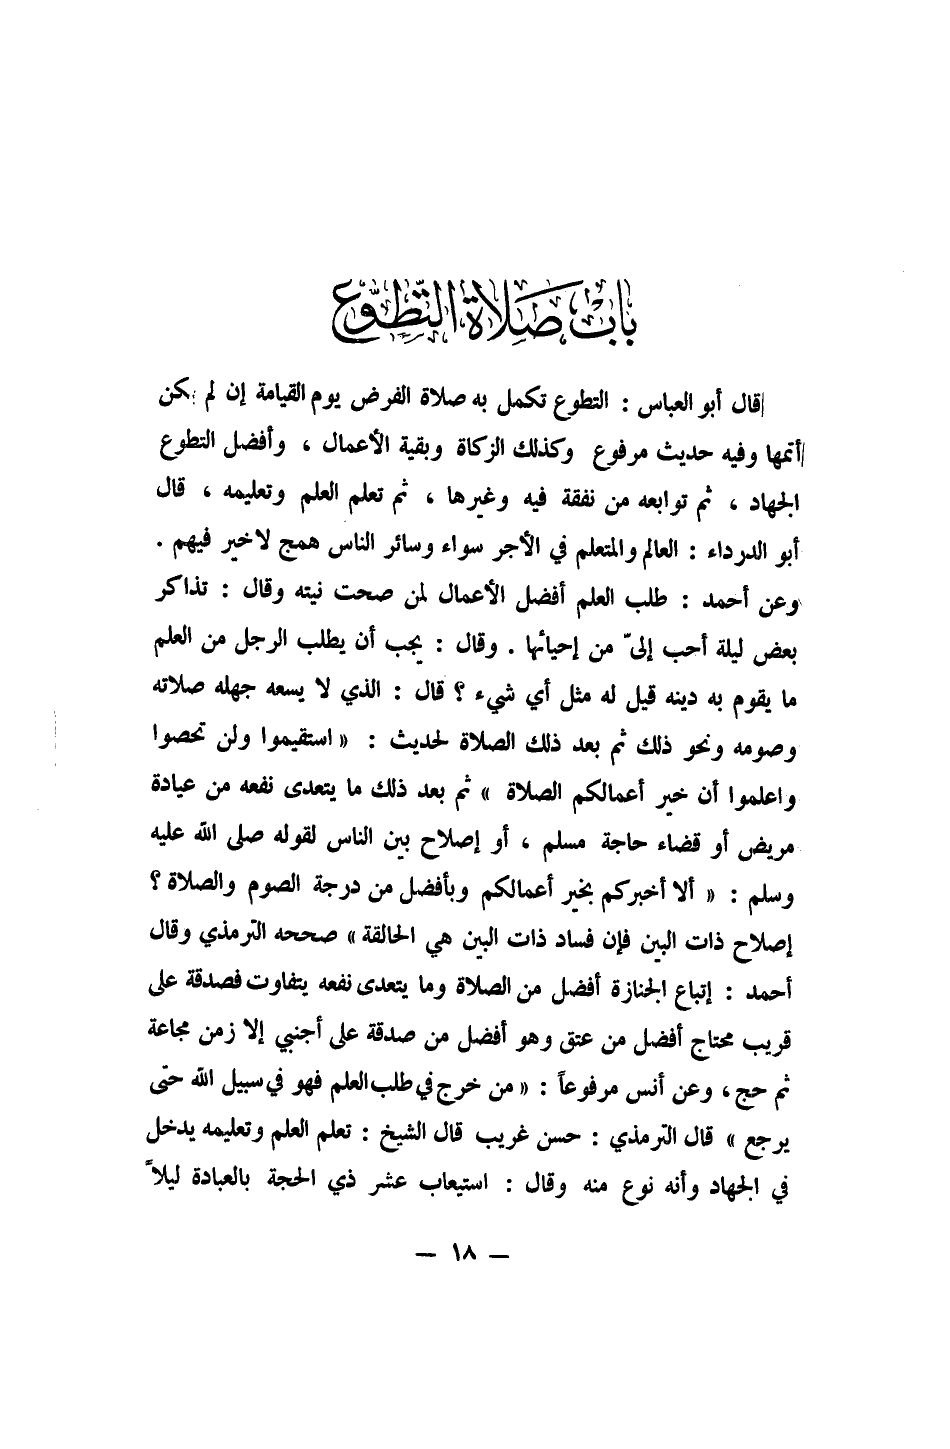 باب صلاة التطوع
قال أبو العباس : التطوع تكمل به صلاة الفرض يوم القيامة إن لم يكن
أتمها وفيه حديث مرفوع وكذلك الزكاة وبقية الأعمال ، وأفضل التطوع
الجهاد ، ثم توابعه من نفقة فيه وغيرها ، ثم تعلم العلم وتعليمه ، قال
أبو الدرداء : العالم والمتعلم في الأجر سواء وسائر الناس همج لا خير فيهم .
وعن أحمد : طلب العلم أفضل الأعمال لمن صحت نيته وقال : تذاكر
بعض ليلة أحب إلىّ من إحيائها . وقال : يجب أن يطلب الرجل من العلم
ما يقوم به دينه قيل له مثل أي شيء ؟ قال : الذي لا يسعه جهله صلاته
وصومه ونحو ذلك ثم بعد ذلك الصلاة لحديث : « استقيموا ولن تحصوا
واعلموا أن خير أعمالكم الصلاة » ثم بعد ذلك ما يتعدى نفعه من عيادة
مريض أو قضاء حاجة مسلم ، أو إصلاح بين الناس لقوله صلى الله عليه
وسلم : « ألا أخبركم بخير أعمالكم وبأفضل من درجة الصوم والصلاة ؟
إصلاح ذات البين فإن فساد ذات البين هي الحالقة » صححه الترمذي وقال
أحمد : إتباع الجنازة أفضل من الصلاة وما يتعدى نفعه يتفاوت فصدقة على
قريب محتاج أفضل من عتق وهو أفضل من صدقة على أجنبي إلا زمن مجاعة
ثم حج ، وعن أنس مرفوعاً : « من خرج في طلب العلم فهو في سبيل الله حتى
يرجع » قال الترمذي : حسن غريب قال الشيخ : تعلم العلم وتعليمه يدخل
في الجهاد وأنه نوع منه وقال : استيعاب عشر ذي الحجة بالعبادة ليلاً
— ١٨ —